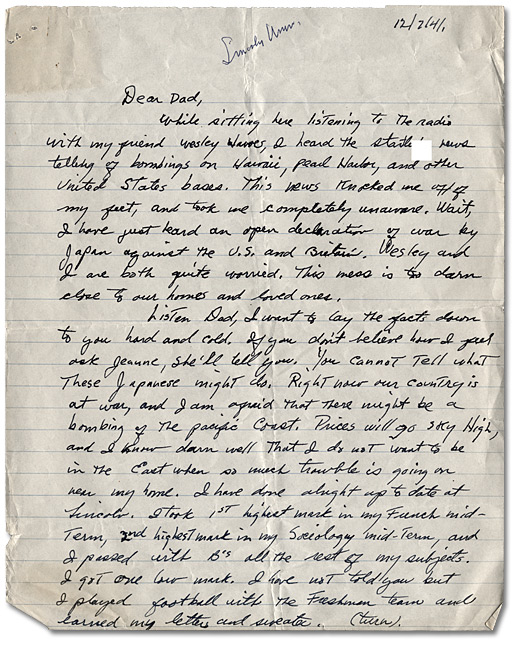 12/7/41
Lincoln Univ.
Dear Dad,
While sitting here listening to the radio
with my friend Wesley Waves, I heard the news
telling of bombings on Hawaii, pearl Harbor, and other
United States bases. This news knocked me off of
my feet, and took me completely unaware. Wait,
I have just heard an open declaration of war by
Japan against the U.S. and Britain. Wesley and
I are both quite worried. This mess is to darn
close to our homes and loved ones.
Listen Dad, I want to lay the facts down
to you hard and cold. If you don't believe how I feel
ask Jeanne, she'll tell you. You cannot tell what
These Japanese might do. Right now our country is
at war, and I am afraid that there might be a
bombing of the pacific Coast. Prices will go sky High,
and I know darn well That I do not want to be
in the East when so much trouble is going on
near my home. I have done alright up to date at
Lincoln. I took 1st highest mark in my French mid-
Term, 2nd highest mark in my Sociology mid-Term, and
I passed with B's all the rest of my subjects.
I got one low mark. I have not told you but
I played football with the Freshman team and
earned my letter and sweater. (turn).